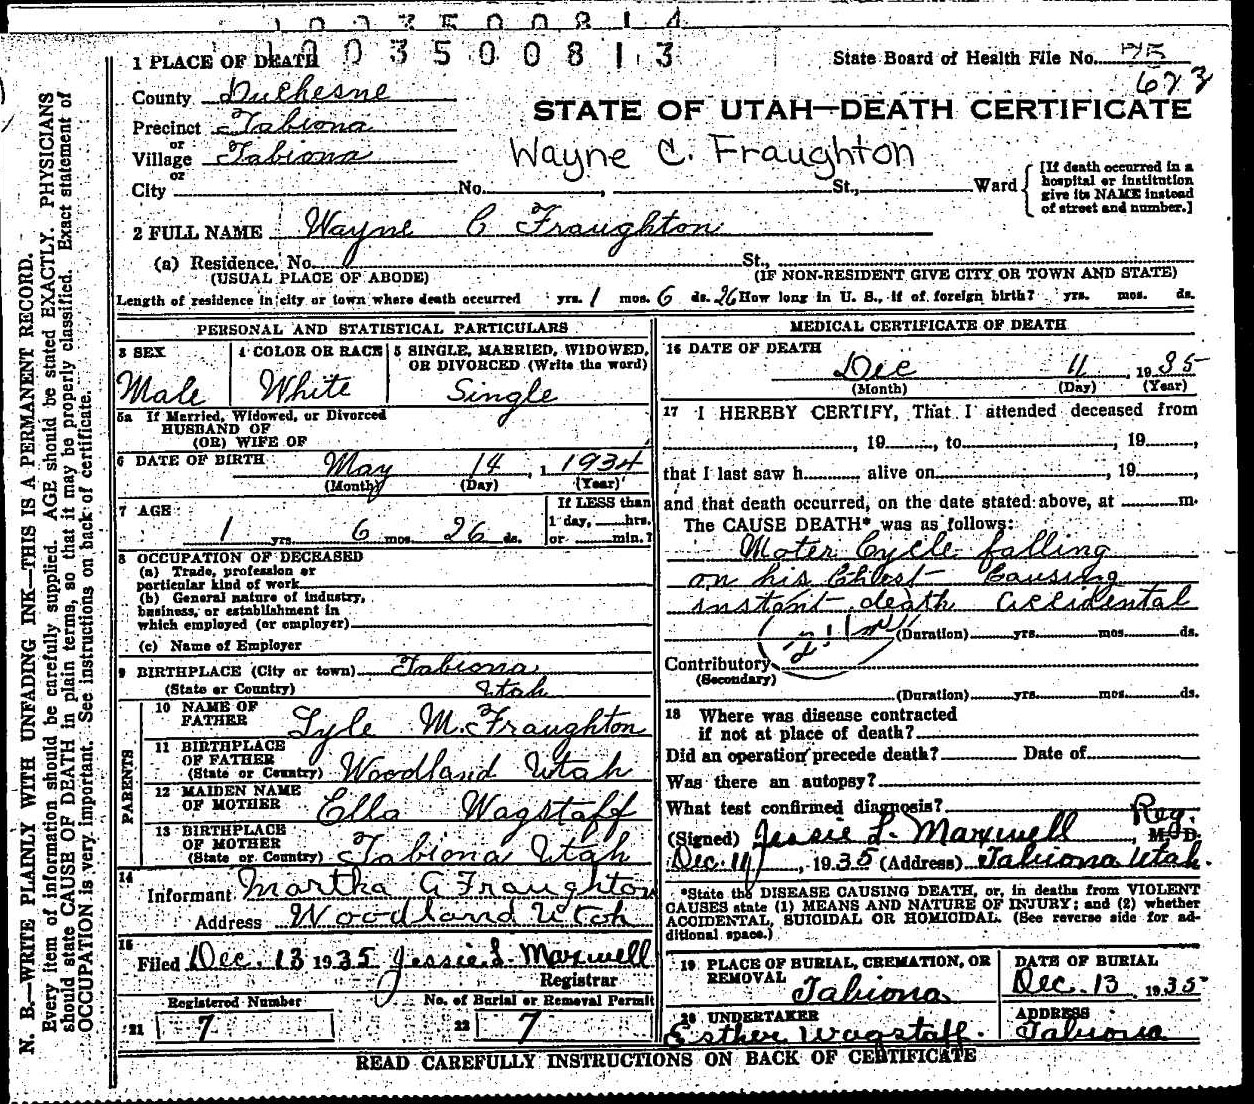 1003500814
1003500813
1 PLACE OF DEATH
State Board of Health File No. 75
623
County Duchesne
STATE OF UTAH—DEATH CERTIFICATE
Precinct Tabiona
or
Village Tabiona
Wayne C. Fraughton
or
City No. , St., Ward
[If death occurred in a
hospital or institution
give its NAME instead
of street and number.]
2 FULL NAME Wayne C Fraughton
(a) Residence. No. St.,
(USUAL PLACE OF ABODE) (IF NON-RESIDENT GIVE CITY OR TOWN AND STATE)
Length of residence in city or town where death occurred yrs. 1 mos. 6 ds. 26 How long in U. S., if of foreign birth? yrs. mos. ds.
PERSONAL AND STATISTICAL PARTICULARS
3 SEX 4 COLOR OR RACE 5 SINGLE, MARRIED, WIDOWED,
OR DIVORCED (Write the word)
Male White Single
5a If Married, Widowed, or Divorced
HUSBAND OF
(OR) WIFE OF
6 DATE OF BIRTH May 14, 1 1934
(Month) (Day) (Year)
7 AGE
1 yrs. 6 mos. 26 ds.
If LESS than
1 day, hrs.
or min.?
8 OCCUPATION OF DECEASED
(a) Trade, profession or
particular kind of work
(b) General nature of industry,
business, or establishment in
which employed (or employer)
(c) Name of Employer
9 BIRTHPLACE (City or town) Tabiona
(State or Country) Utah
PARENTS
10 NAME OF
FATHER Lyle M. Fraughton
11 BIRTHPLACE
OF FATHER
(State or Country) Woodland Utah
12 MAIDEN NAME
OF MOTHER Ella Wagstaff
13 BIRTHPLACE
OF MOTHER
(State or Country) Tabiona Utah
14
Informant Martha A Fraughton
Address Woodland Utah
15
Filed Dec. 13 1935 Jessie L. Maxwell
Registrar
Registered Number No. of Burial or Removal Permit
21 7 22 7
MEDICAL CERTIFICATE OF DEATH
16 DATE OF DEATH
Dec 11, 1935
(Month) (Day) (Year)
17 I HEREBY CERTIFY, That I attended deceased from
, 19 , to , 19 ,
that I last saw h alive on , 19 ,
and that death occurred, on the date stated above, at m.
The CAUSE DEATH* was as follows:
Moter Cycle falling
on his Chest Causing
instant death Accidental
(Duration) yrs. mos. ds.
Contributory
(Secondary)
(Duration) yrs. mos. ds.
18 Where was disease contracted
if not at place of death?
Did an operation precede death? Date of
Was there an autopsy?
What test confirmed diagnosis? Reg.
(Signed) Jessie L. Maxwell, M. D.
Dec. 11, 1935 (Address) Tabiona Utah.
*State the DISEASE CAUSING DEATH, or, in deaths from VIOLENT
CAUSES state (1) MEANS AND NATURE OF INJURY; and (2) whether
ACCIDENTAL, SUICIDAL OR HOMICIDAL. (See reverse side for ad-
ditional space.)
19 PLACE OF BURIAL, CREMATION, OR
REMOVAL Tabiona
DATE OF BURIAL
Dec. 13, 1935
20 UNDERTAKER
Esther Wagstaff.
ADDRESS
Tabiona
READ CAREFULLY INSTRUCTIONS ON BACK OF CERTIFICATE
N. B.—WRITE PLAINLY WITH UNFADING INK—THIS IS A PERMANENT RECORD.
Every item of information should be carefully supplied. AGE should be stated EXACTLY. PHYSICIANS
should state CAUSE OF DEATH in plain terms, so that it may be properly classified. Exact statement of
OCCUPATION is very important. See instructions on back of certificate.